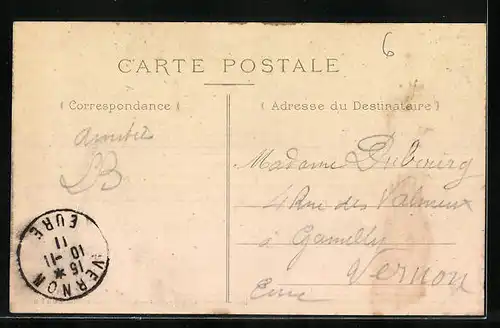 6
CARTE POSTALE
( Correspondance )
( Adresse du Destinataire )
Amitiés
LB
Madame Dubourg
4 Rue des Valmeux
à Gamilly
Vernon
Eure
VERNON * EURE
15-11
10
11